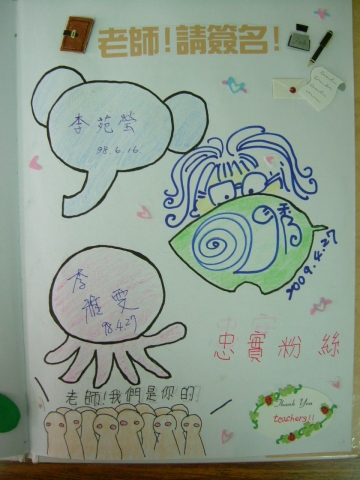 老師！請簽名！
李苑瑩
98.6.16.
2009.4.27
李雅雯
98.4.27
忠實粉絲
老師！我們是你的
Thank You
teachers!!